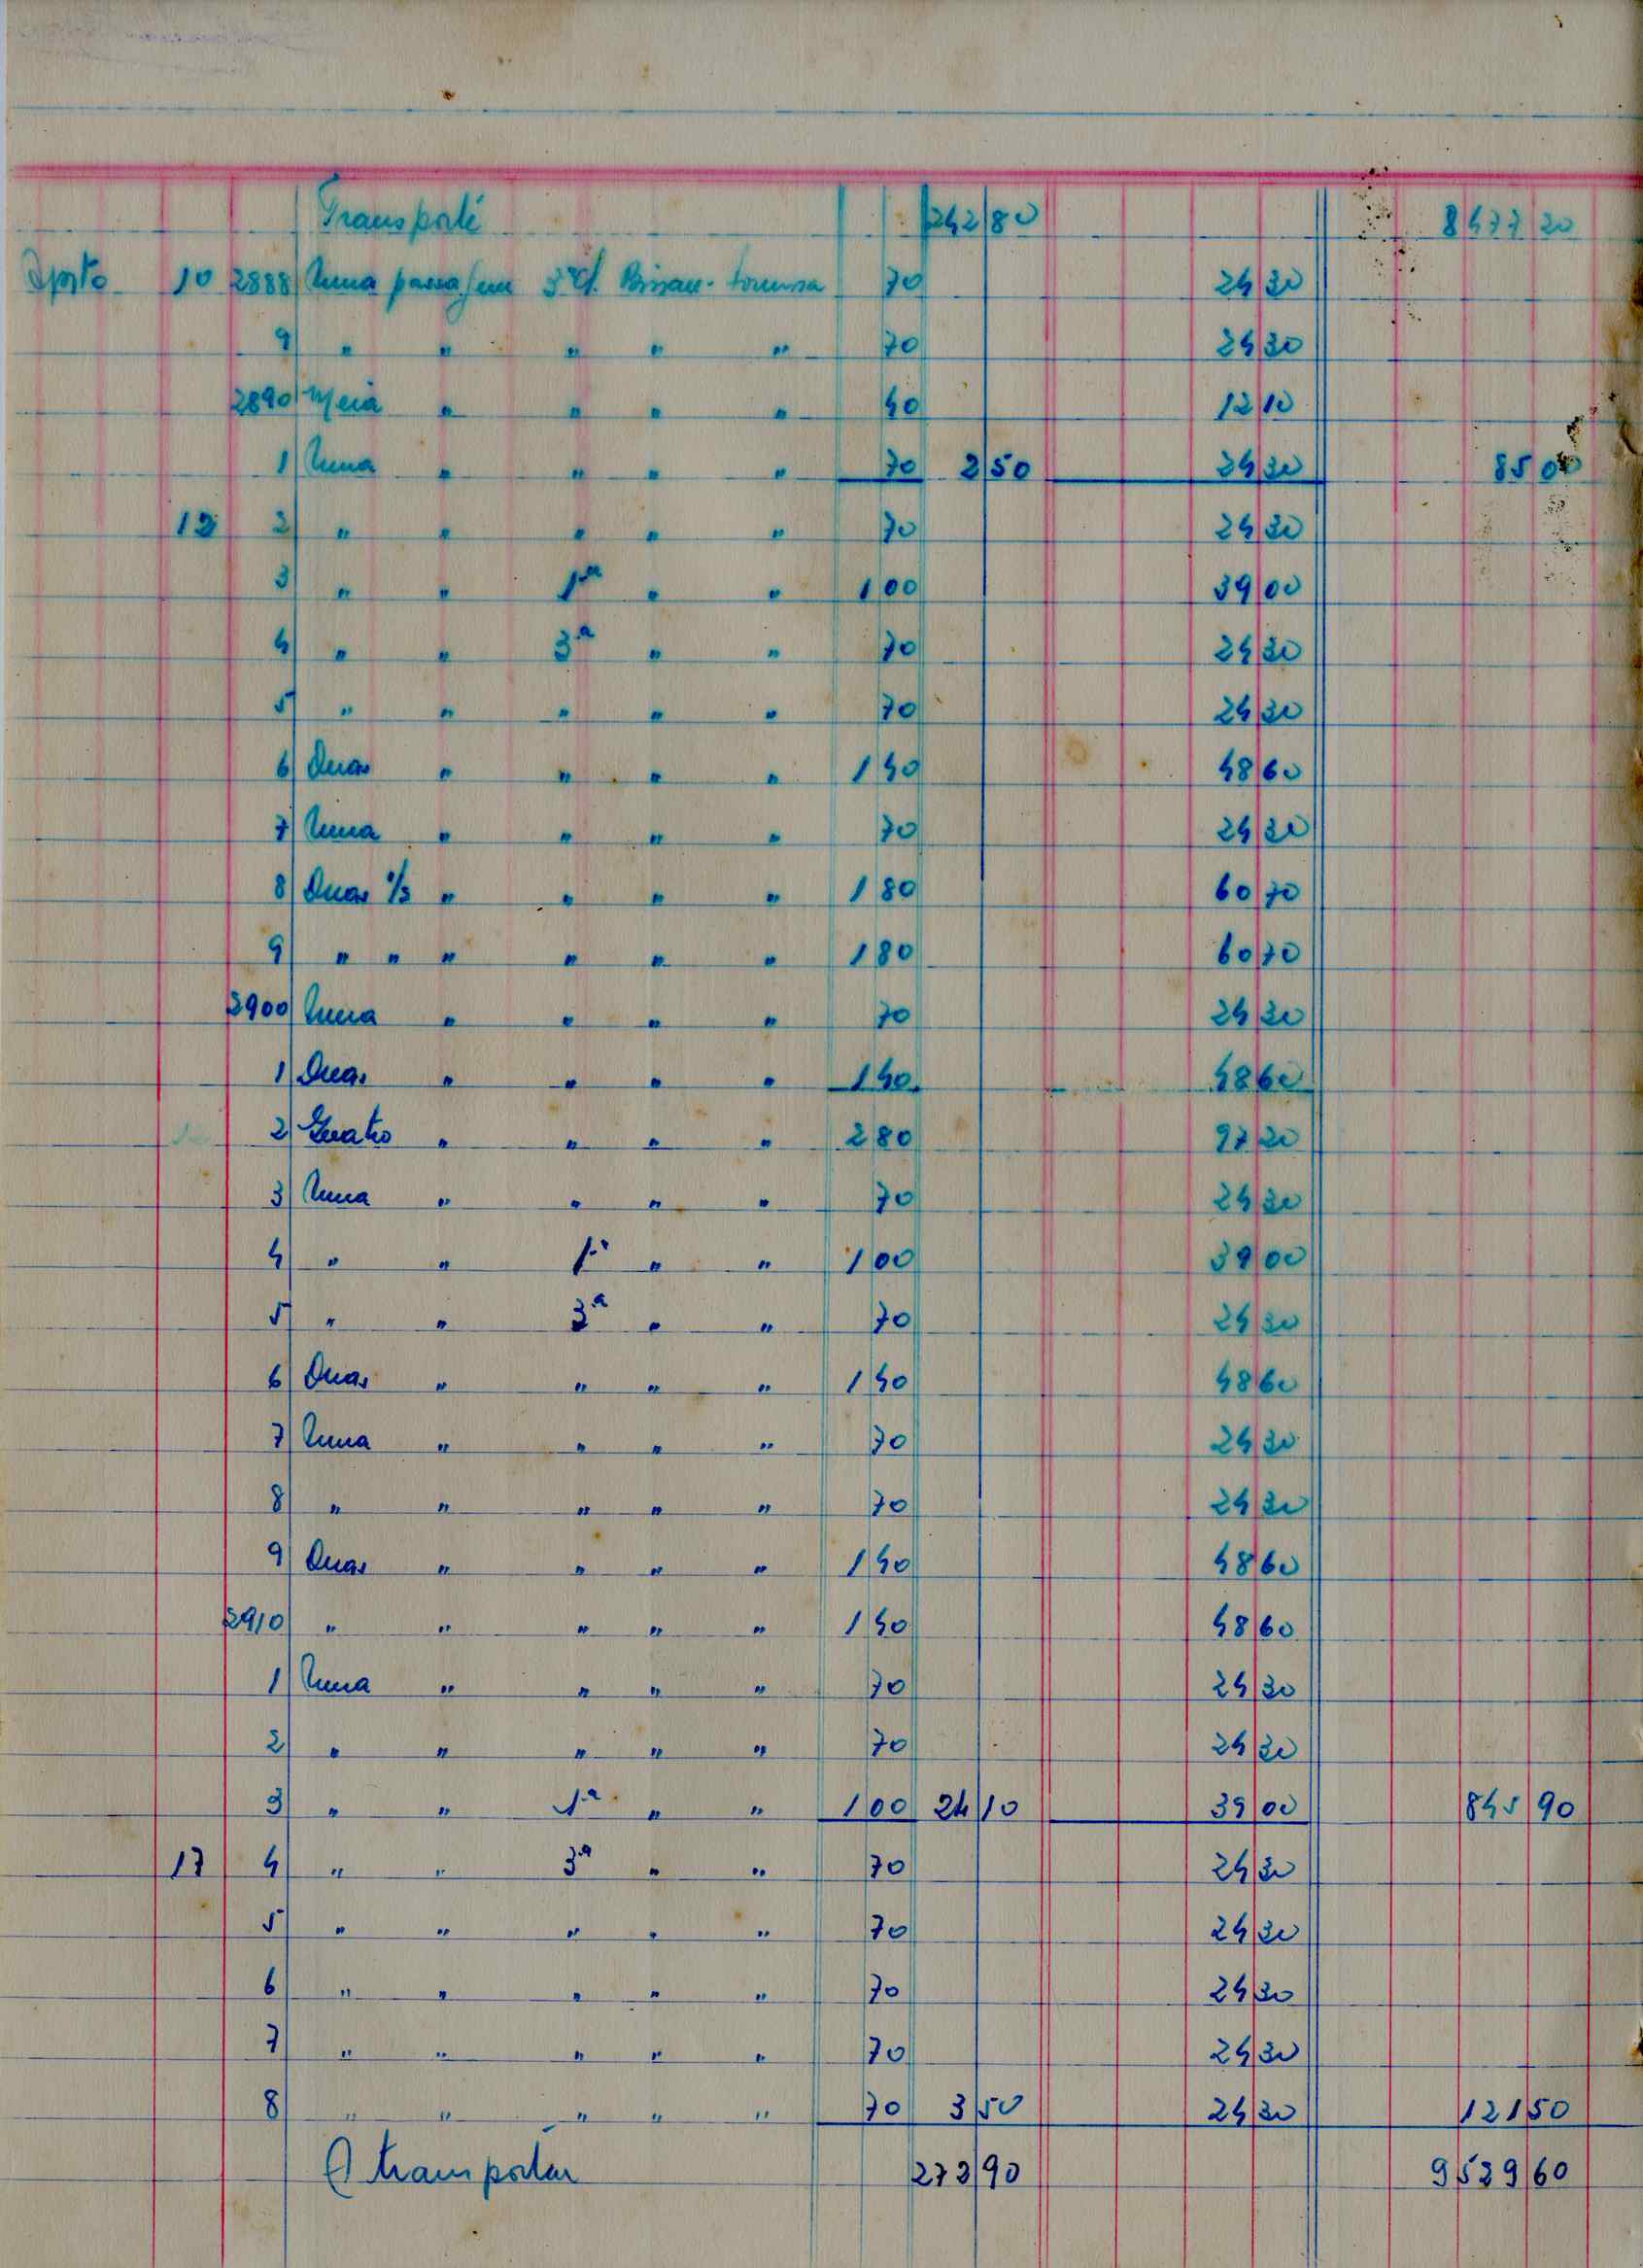 Transporte 242 80 8477 20
Agosto 10 2888 Uma passagem 3ª cl. Bissau- 70 24 30
9 " " " " " 70 24 30
2890 Meia " " " " 40 12 10
1 Uma " " " " 70 2 50 24 30 85 00
12 2 " " " " " 70 24 30
3 " " 1ª " " 1 00 39 00
4 " " 3ª " " 70 24 30
5 " " " " " 70 24 30
6 Duas " " " " 1 40 48 60
7 Uma " " " " 70 24 30
8 Duas 1/2 " " " " 1 80 60 70
9 " " " " " " 1 80 60 70
2900 Uma " " " " 70 24 30
1 Duas " " " " 1 40 48 60
2 Quatro " " " " 2 80 97 20
3 Uma " " " " 70 24 30
4 " " 1ª " " 1 00 39 00
5 " " 3ª " " 70 24 30
6 Duas " " " " 1 40 48 60
7 Uma " " " " 70 24 30
8 " " " " " 70 24 30
9 Duas " " " " 1 40 48 60
2910 " " " " " 1 40 48 60
1 Uma " " " " 70 24 30
2 " " " " " 70 24 30
3 " " 1ª " " 1 00 24 10 39 00 845 90
17 4 " " 3ª " " 70 24 30
5 " " " " " 70 24 30
6 " " " " " 70 24 30
7 " " " " " 70 24 30
8 " " " " " 70 3 50 24 30 121 50
A transportar 272 90 9529 60